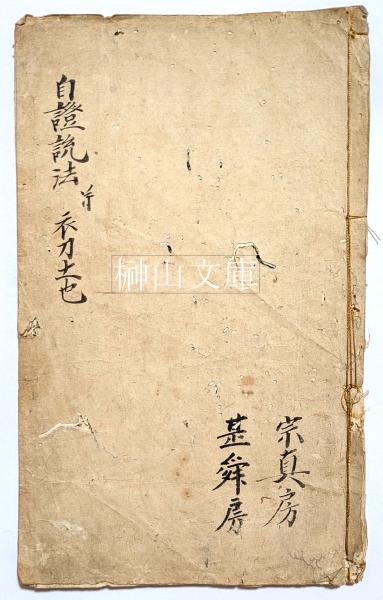 自證説法 并 衣刀土也
榊山文庫
宗真房
甚舜房